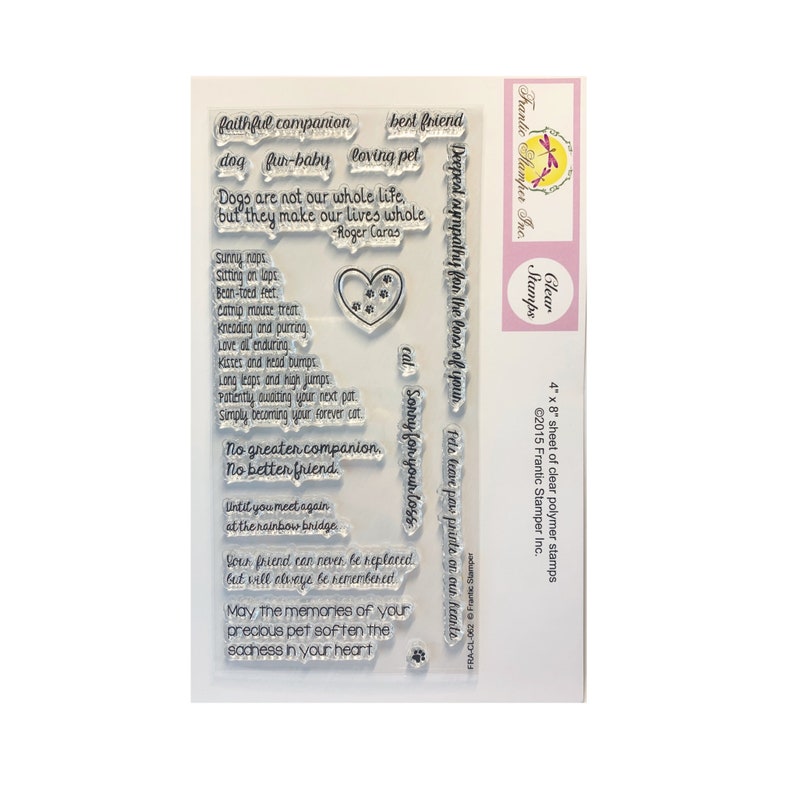 faithful companion
best friend
dog
fur-baby
loving pet
Dogs are not our whole life,
but they make our lives whole
-Roger Caras
Sunny naps.
Sitting on laps.
Bean-toed feet.
Catnip mouse treat.
Kneading and purring.
Love all enduring.
Kisses and head bumps.
Long leaps and high jumps.
Patiently awaiting your next pat.
Simply becoming your forever cat.
No greater companion,
No better friend.
Until you meet again
at the rainbow bridge.
Your friend can never be replaced
but will always be remembered.
May the memories of your
precious pet soften the
sadness in your heart.
Deepest sympathy for the loss of your
cat
Sorry for your loss.
Pets leave paw prints on our hearts
FRA-CL-062 © Frantic Stamper
Frantic Stamper Inc.
Clear
Stamps
4" x 8" sheet of clear polymer stamps
©2015 Frantic Stamper Inc.